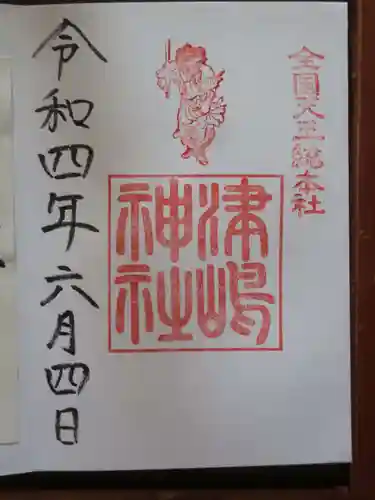 全国天王総本社
津嶋
神社
令和四年六月四日